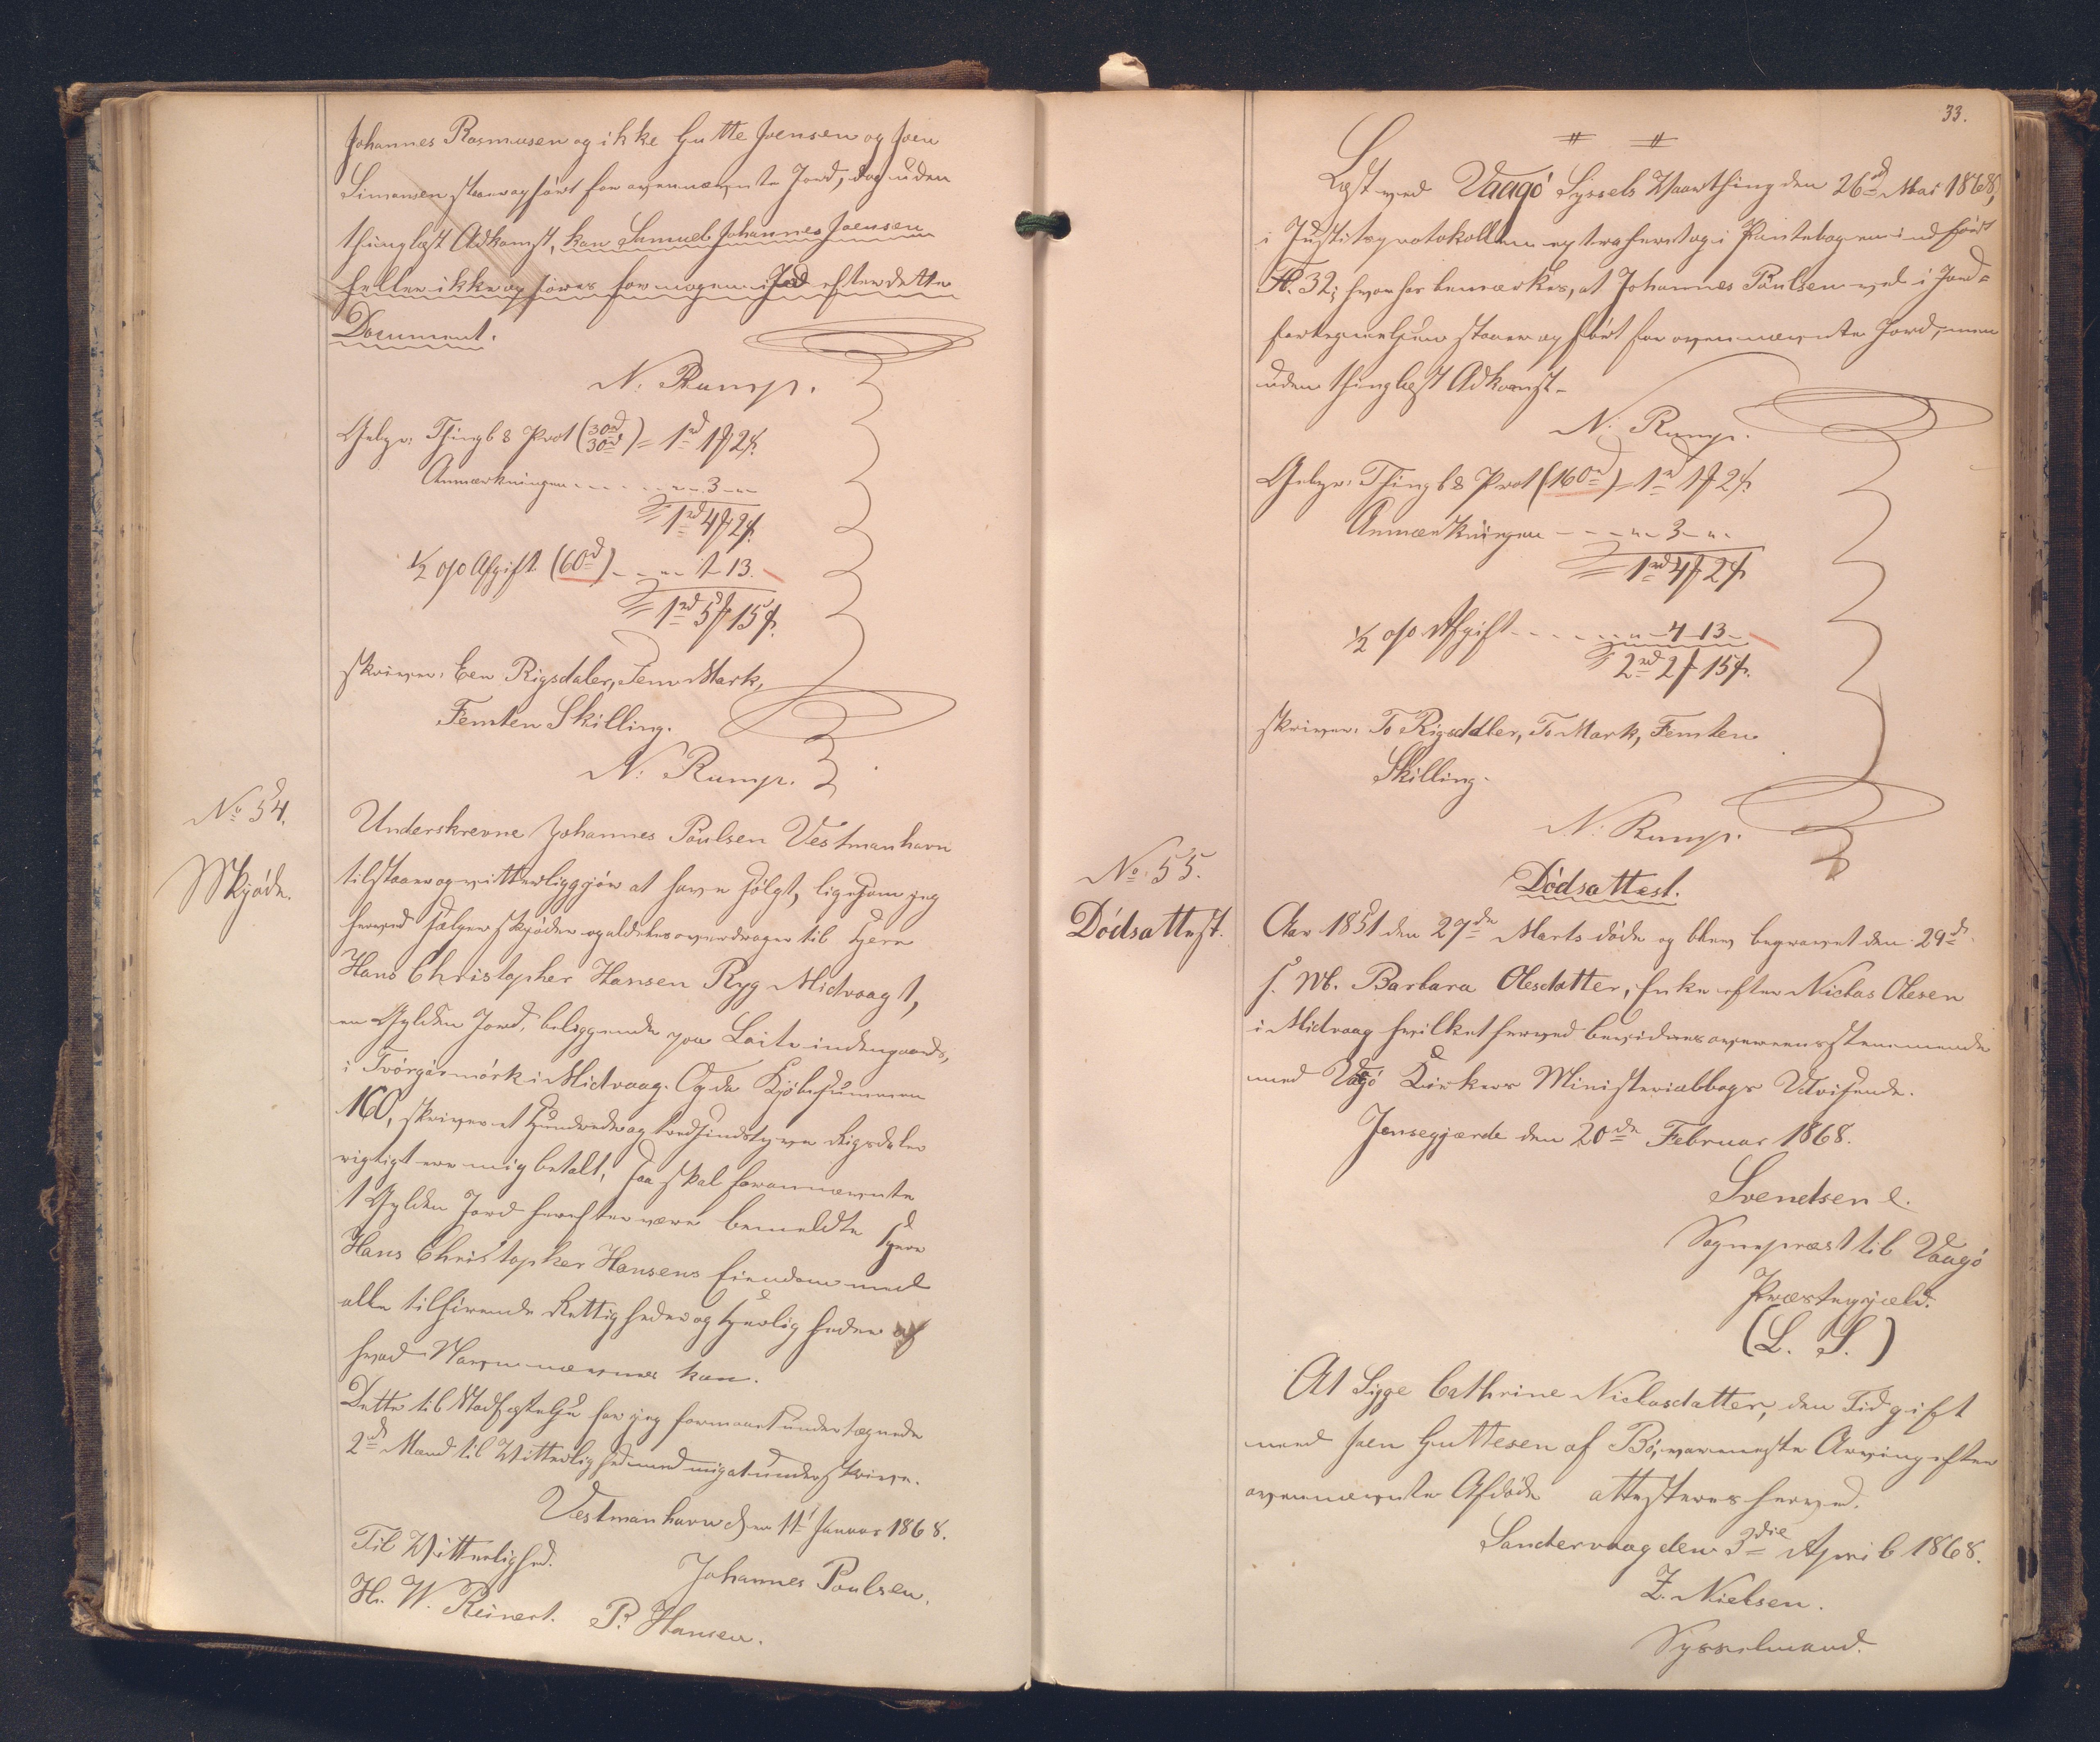 Johannes Rasmusen og ikke Gutte Joensen og Joen
Simonsen staar opført for ovennævnte Jord, dog uden
thinglæst Adkomst, kan Samuel Johannes Joensen
heller ikke opføres for nogen Jord efter dette
Document.
N: Rump.
Gebyr: Thingl & Prot (30rd 30rd) = 1rd 1 ℳ 2 ß.
Anmærkningen - - - - - „ - 3 - „
= 1rd 4 ℳ 2 ß.
½ o/o Afgift (60rd) - - „ - 1 - 13.
= 1rd 5 ℳ 15 ß.
skriver: Een Rigsdaler, Fem Mark,
Femten Skilling.
N: Rump.
No 54.
Skjøde.
Underskrevne Johannes Poulsen Vestmanhavn
tilstaaer og vitterliggjør at have solgt, ligesom jeg
herved sælger skjøder og aldeles overdrager til Herr
Hans Christopher Hansen Ryg Midvaag 1,
en Gylden Jord, beliggende paa Laite indengaards,
i Tvørgármørk i Midvaag. Og da Kjøbesummen
160, skriver et Hundrede og tredsindstyve Rigsdaler
rigtigt er mig betalt, saa skal forannævnte
1 Gylden Jord herefter være bemeldte Herr
Hans Christopher Hansens Eiendom med
alle tilhørende Rettigheder og Herligheder af
hvad Navn nævnes kan.
Dette til Stadfæstelse har jeg formaaet undertegnede
2de Mænd til Vitterlighed med mig at underskrive.
Vestmanhavn den 11' Januar 1868.
Til Vitterlighed.
Johannes Poulsen.
H. W. Reinert. P. Hansen.
33.
Læst ved Vaagø Syssels Vaarthing den 26de Mai 1868,
i Justitsprotokollen extraheret og i Pantebogen indført
Fol. 32; hvorhos bemærkes, at Johannes Poulsen vel i Jord=
fortegnelsen staaer opført for ovennævnte Jord, men
uden thinglæst Adkomst.
N: Rump.
Gebyr: Thingl & Prot (160rd) = 1rd 1 ℳ 2 ß.
Anmærkningen - - - „ - 3 - „
= 1rd 4 ℳ 2 ß
½ o/o Afgift - - - - - „ - 4 - 13 -
= 2rd 2 ℳ 15 ß.
skriver: To Rigsdaler, To Mark, Femten
Skilling.
N: Rump.
No. 55.
Dødsattest.
Dødsattest.
Aar 1851 den 27de Marts døde og blev begravet den 29de
s. M. Barbara Olesdatter, Enke efter Niclas Olesen
i Midvaag hvilket herved bevidnes overeensstemmende
med Vagø Kirkes Ministerialbogs Udvisende.
Jensegjærde den 20de Februar 1868.
Svendsen l.
Sognepræst til Vaagø
Præstegjæld.
(L. S.)
At Sigge Cathrine Niclasdatter, den Tid gift
med Joen Guttesen af Bø, var eneste Arving efter
ovennævnte Afdøde attesteres herved.
Sandervaag den 3die April 1868.
Z. Nielsen.
Sysselmand.